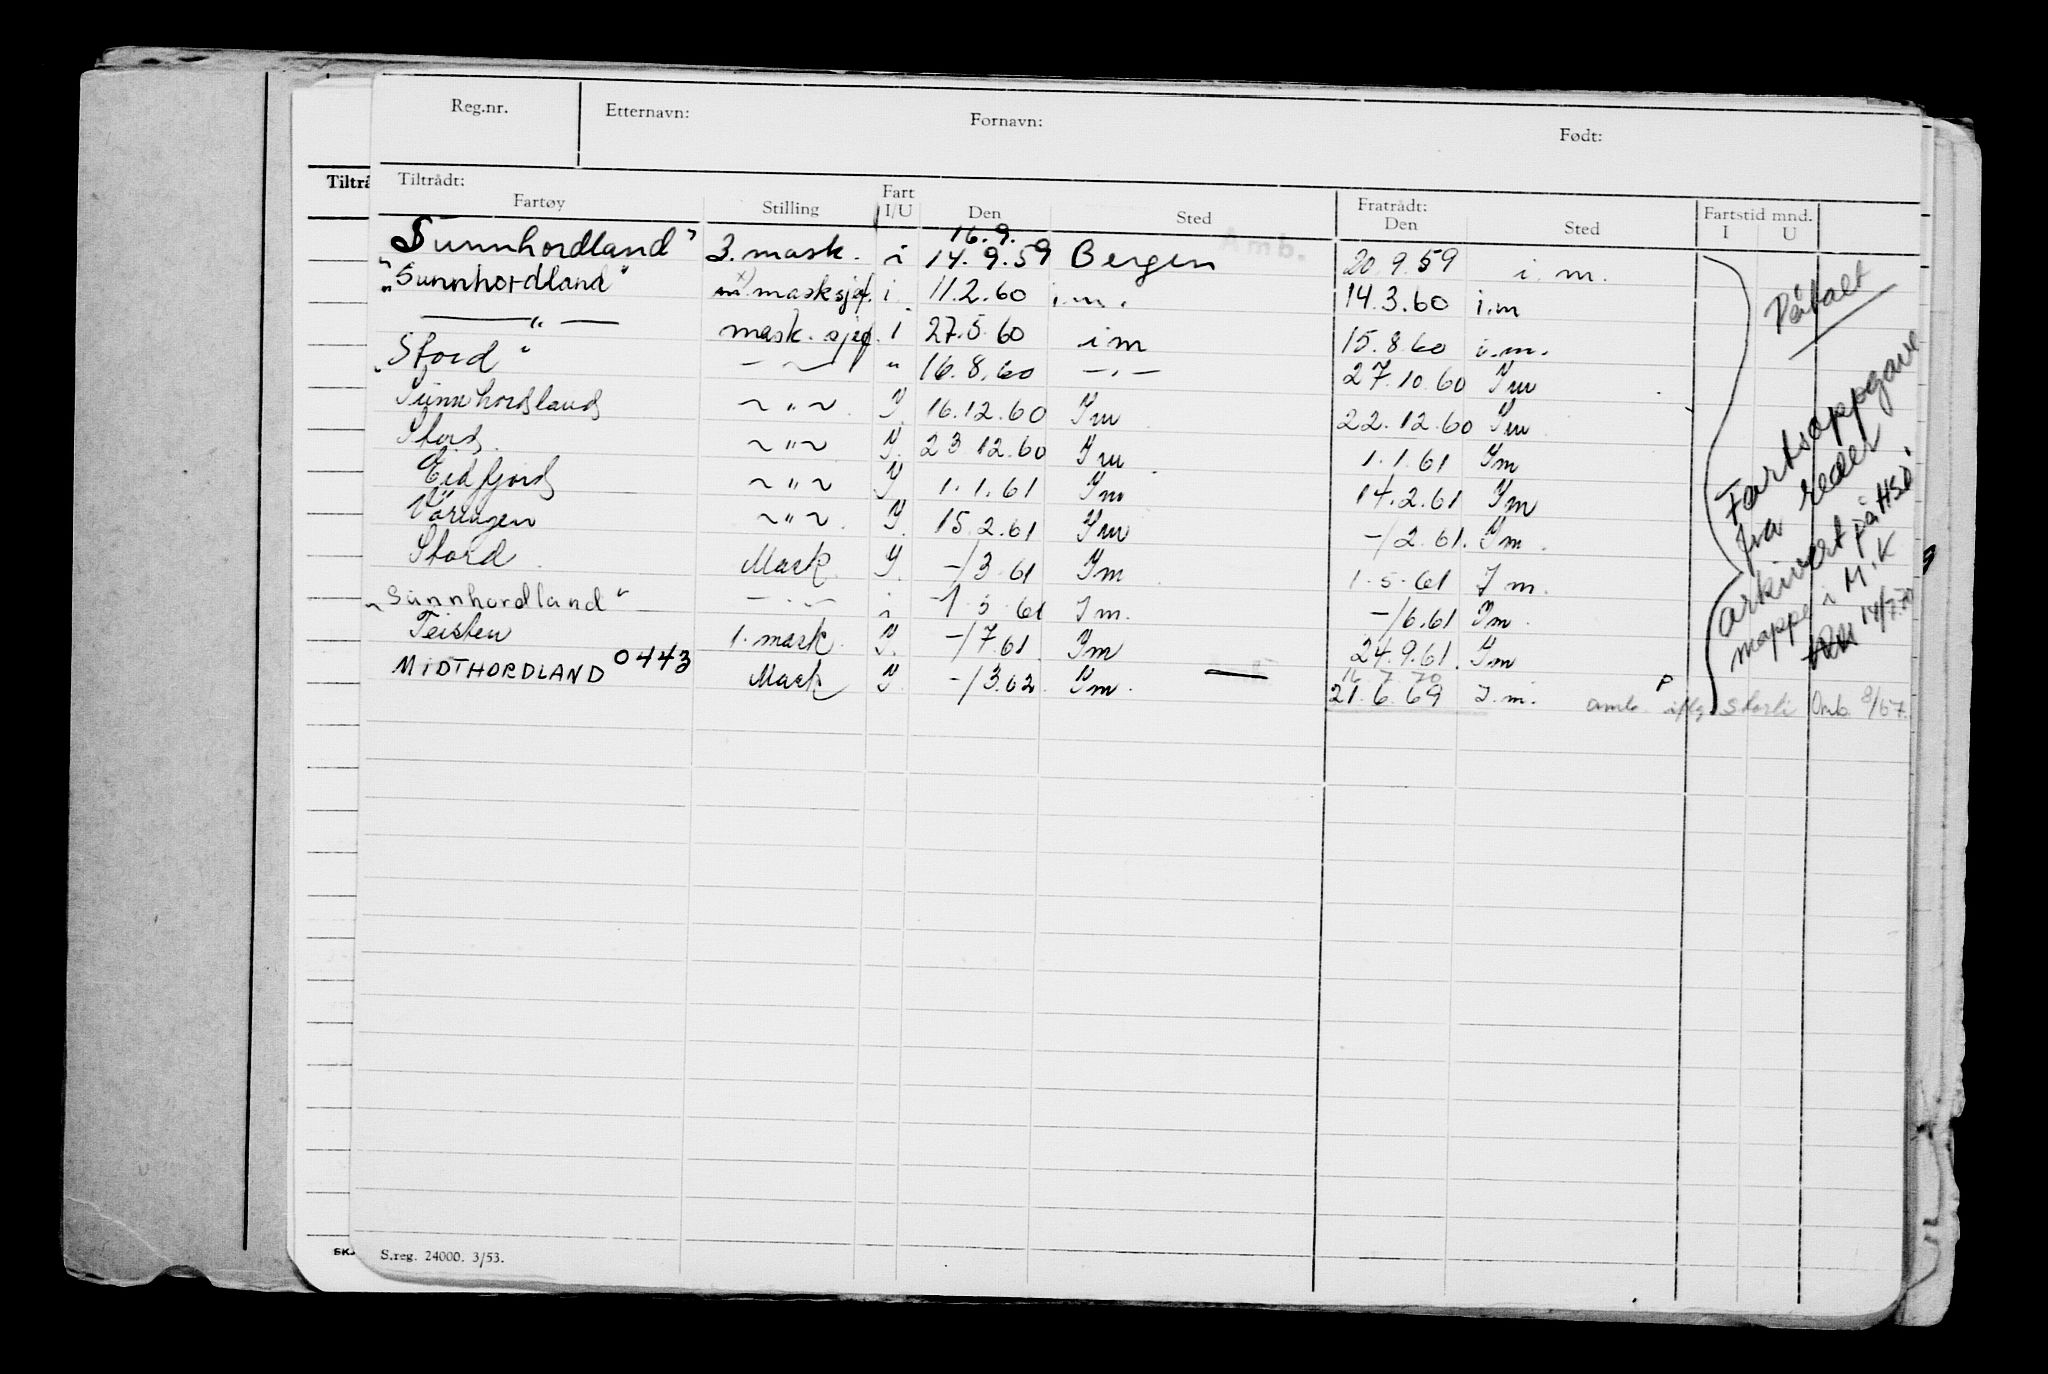 Reg.nr. Etternavn: Fornavn: Født:
Tiltrå Tiltrådt: Fratrådt:
Fartøy Stilling Fart I/U Den Sted Den Sted Fartstid mnd. I U
16.9. Amb.
Sunnhordland" 3. mask. i 14.9.59 Bergen 20.9.59 i.m.
"Sunnhordland" x) mask sjef. i. 11.2.60 i.m. 14.3.60 i.m
— " — mask. sjef. i 27.5.60 im 15.8.60 i.m.
"Stord" — " — " 16.8.60 — " — 27.10.60 Im
Sunnhordland ~ " ~ I. 16.12.60 Im 22.12.60 Im
Stord. ~ " ~ I. 23.12.60 Im 1.1.61 Im
Eidfjord ~ " ~ I 1.1.61 Im 14.2.61 Im
Vöringen ~ " ~ I. 15.2.61 Im -/2.61. Im.
Stord Mask. I. -/3.61 Im 1.5.61 I m.
"Sunnhordland" — " — i -/5.61 Im. -/6.61 Im.
Teisten 1. mask. I. -/7.61 Im 24.9.61. Im
16.7.70
MIDTHORDLAND 0443 Mask I. -/3.62. Im. — 21.6.69 I.m. P amb. iflg. Storli Omb. 8/67.
Påtalt
Fartsoppgave
fra reder
arkivert på HSD
mappe i M.K
14/7.70
SK. S.reg. 24000. 3/53.